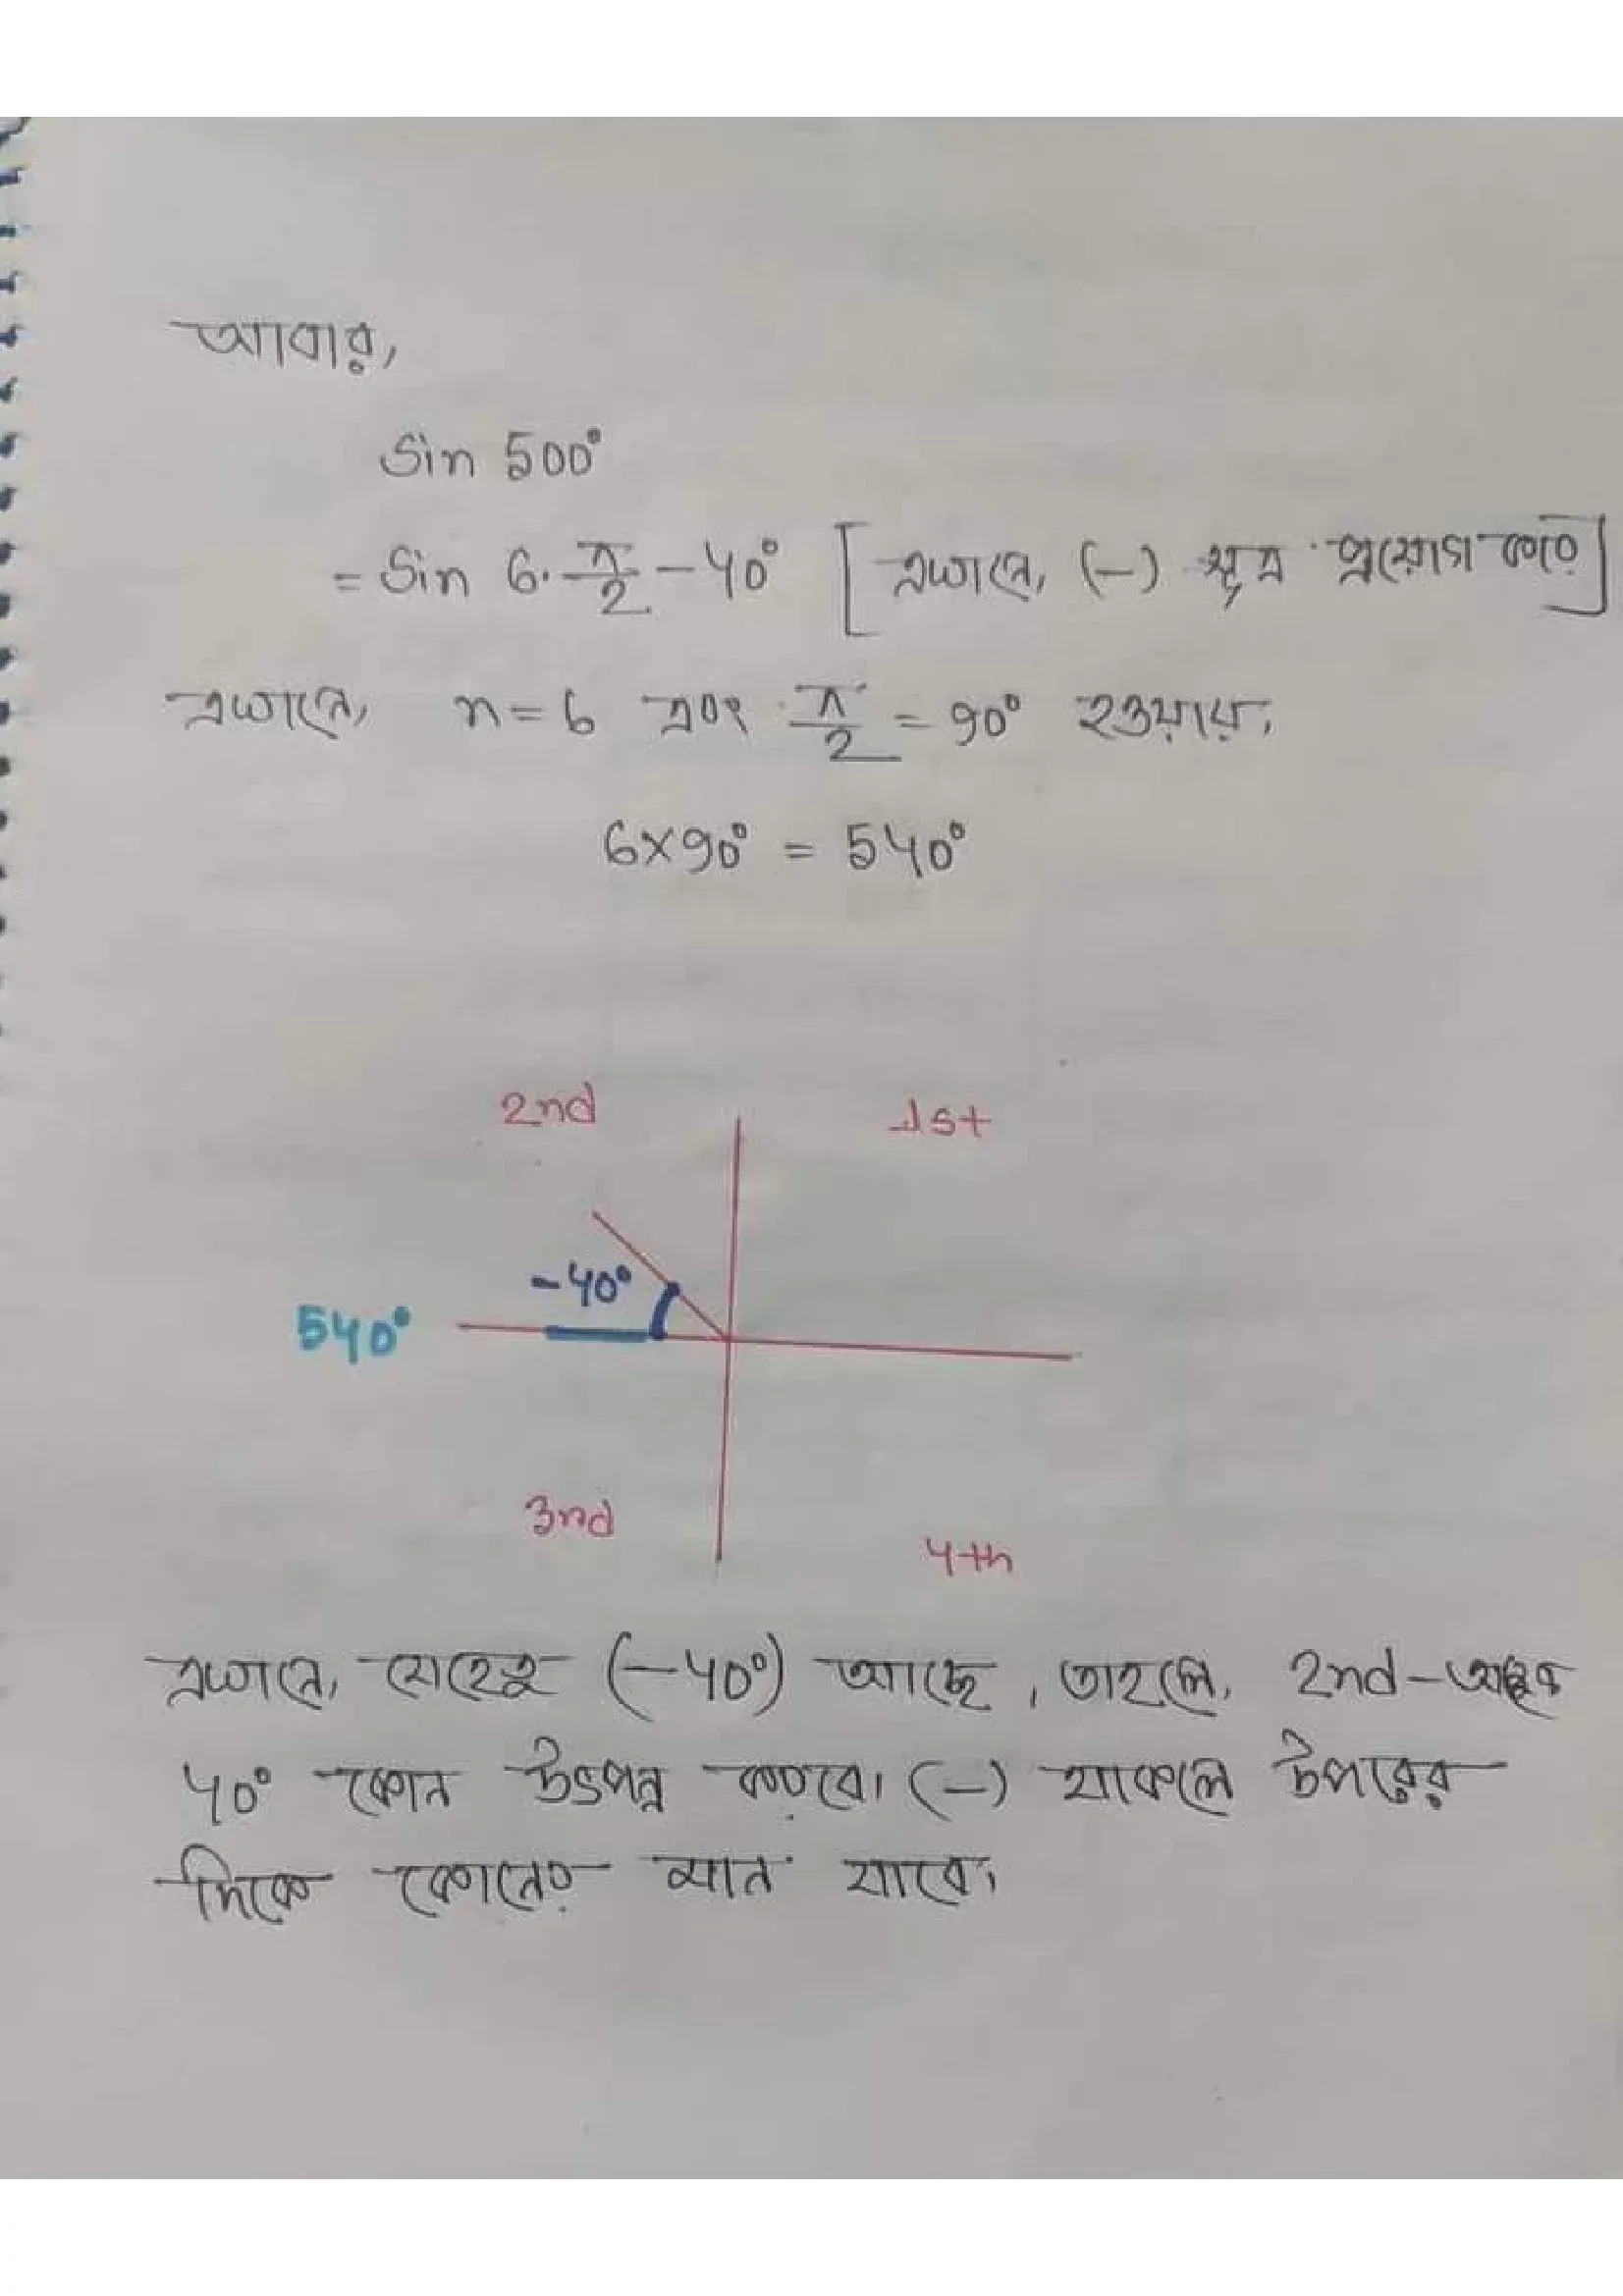 আবার,
Sin 500°
= Sin 6. π/2 - 40° [এখানে, (-) সূত্র প্রয়োগ করে]
এখানে, n = 6 এবং π/2 = 90° হওয়ায়,
6×90° = 540°
2nd 1st
-40°
540°
3nd
4th
এখানে, যেহেতু (-40°) আছে, তাহলে, 2nd-
40° কোন উৎপন্ন করবে। (-) থাকলে উপরের
দিকে কোনের মান যাবে।